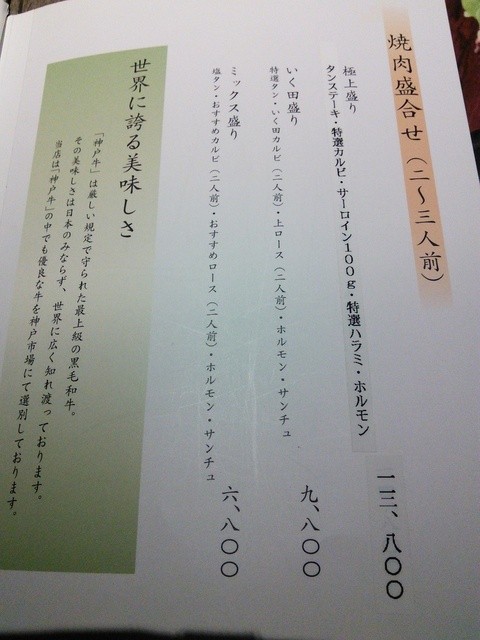 焼肉盛合せ（二〜三人前）
極上盛り
タンステーキ・特選カルビ・サーロイン100g・特選ハラミ・ホルモン
一三、八〇〇
いく田盛り
特選タン・いく田カルビ（二人前）・上ロース（二人前）・ホルモン・サンチュ
九、八〇〇
ミックス盛り
塩タン・おすすめカルビ（二人前）・おすすめロース（二人前）・ホルモン・サンチュ
六、八〇〇
世界に誇る美味しさ
「神戸牛」は厳しい規定で守られた最上級の黒毛和牛。
その美味しさは日本のみならず、世界に広く知れ渡っております。
当店は「神戸牛」の中でも優良な牛を神戸市場にて選別しております。